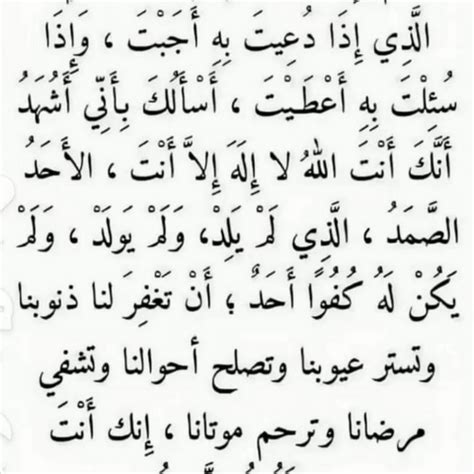 الَّذِي إِذَا دُعِيتَ بِهِ أَجَبْتَ ، وَإِذَا
سُئِلْتَ بِهِ أَعْطَيْتَ ، أَسْأَلُكَ بِأَنِّي أَشْهَدُ
أَنَّكَ أَنْتَ اللهُ لا إِلَهَ إِلاَّ أَنْتَ ، الأَحَدُ
الصَّمَدُ ، الَّذِي لَمْ يَلِدْ، وَلَمْ يَولَدْ ، وَلَمْ
يَكُنْ لَهُ كُفُوًا أَحَدٌ ؛ أَنْ تَغْفِرَ لنا ذنوبنا
وتستر عيوبنا وتصلح أحوالنا وتشفي
مرضانا وترحم موتانا ، إنك أَنْتَ